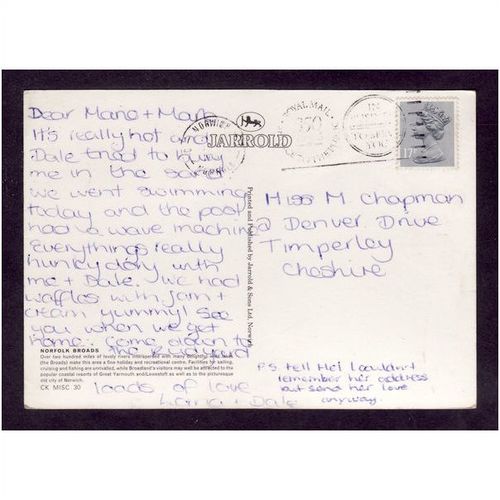 Dear Marie + Mark
It's really hot and
Dale tried to bury
me in the sand
we went swimming
today and the pool
had a wave machine
Everythings really
hunky dory with
me + Dale. We had
waffles with jam +
cream yummy! See
you when we get
home. Come down to
NORFOLK BROADS
Over two hundred miles of lovely rivers interspersed with many delightful
(the Broads) make this area a fine holiday and recreational centre. Facilities for sailing,
cruising and fishing are unrivalled, while Broadland's visitors may well be attracted to the
popular coastal resorts of Great Yarmouth and Lowestoft as well as to the picturesque
old city of Norwich.
CK MISC 30
loads of love
+ Dale
JARROLD
Printed and Published by Jarrold & Sons Ltd, Norwich
NORWICH
ROYAL MAIL
350
YEARS
17
Miss M. Chapman
Denver Drive
Timperley
Cheshire
P.S tell Mel I couldn't
remember her address
but send her love
anyway.